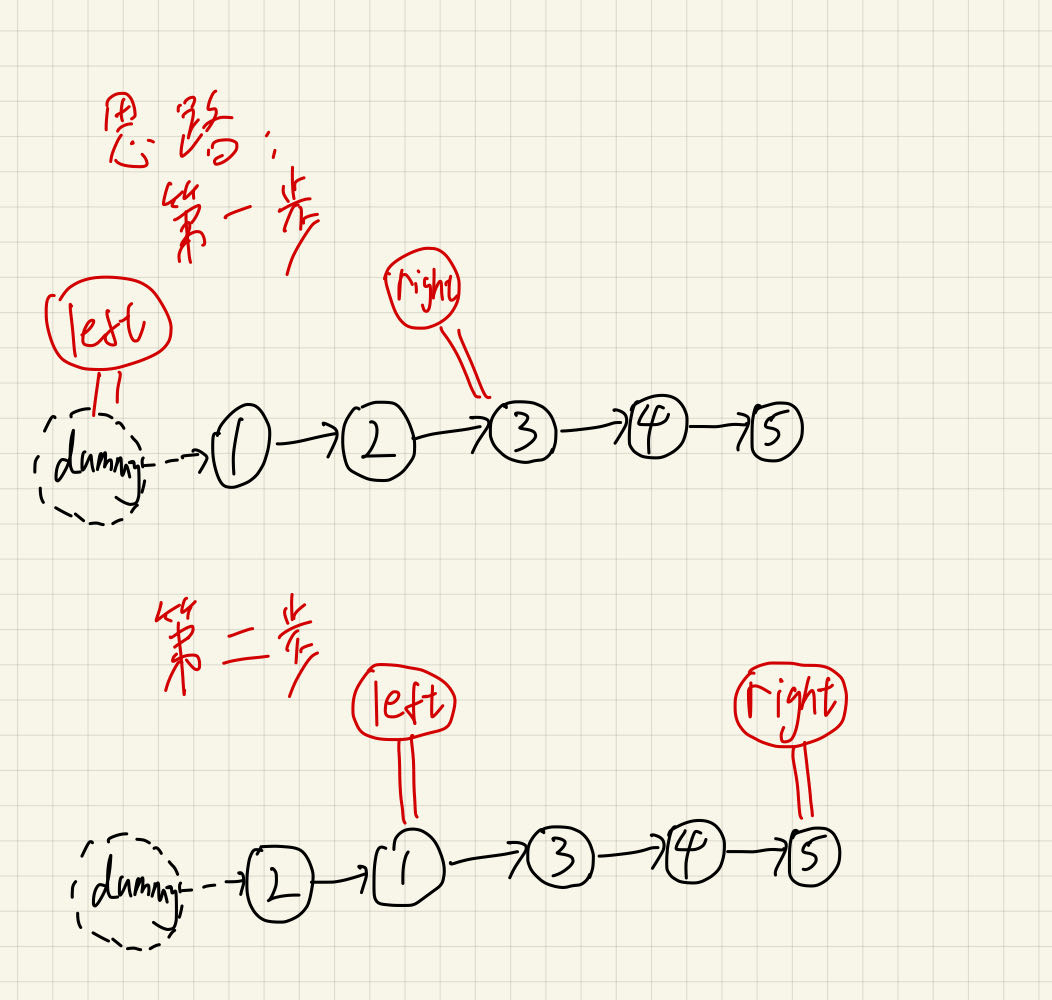 思路:
第一步
left
right
dummy 1 2 3 4 5
第二步
left
right
dummy 2 1 3 4 5